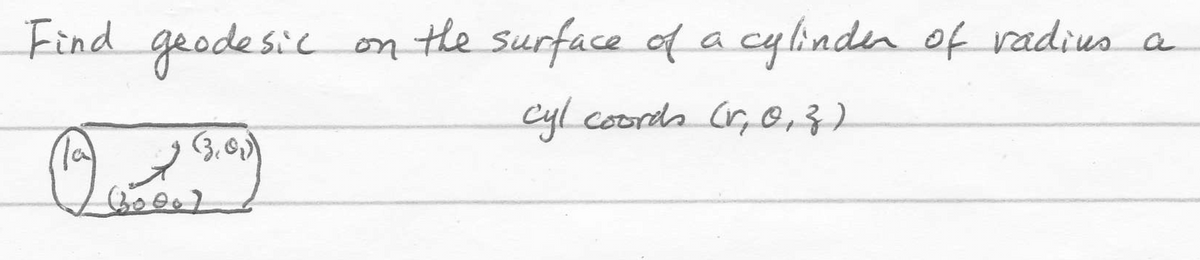 Find geodesic on the surface of a cylinder of radius a
cyl coords (r, θ, z)
a
(z₁ θ₁)
(z₀ θ₀)